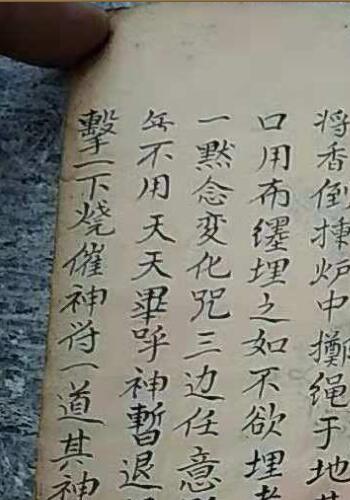 将香倒㨂炉中擲绳于地
口用布缠埋之如不欲埋
一黙念变化咒三边任意
不用天天畢呼神暫退
擊一下烧催神符一道其神